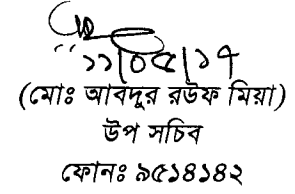 ১১/০৫/১৭
(মোঃ আবদুর রউফ মিয়া)
উপ সচিব
ফোনঃ ৯৫১৪১৪২